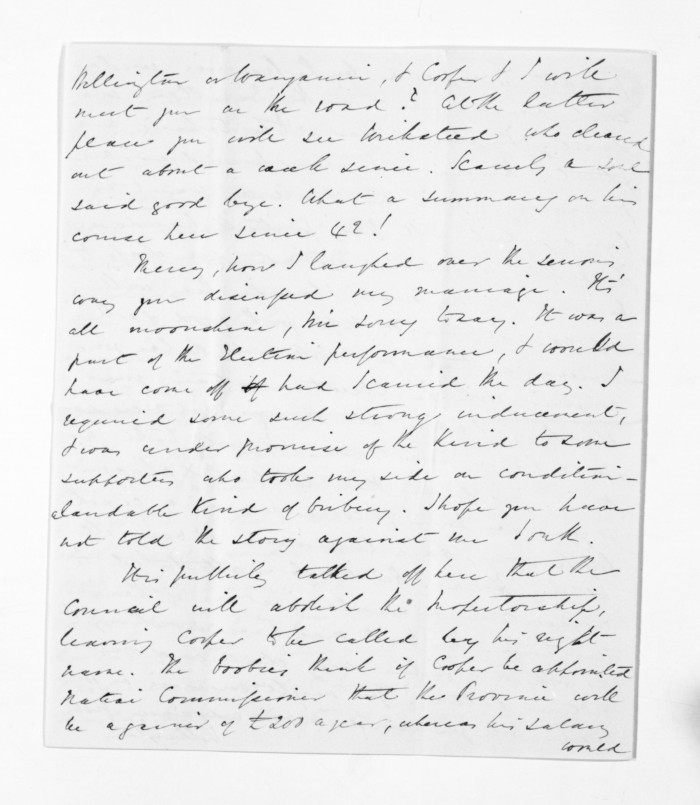 Wellington or Wanganui, & Cooper & I will
meet you on the road? At the latter
place you will see who cleared
out about a week since. Scarcely a soul
said good bye. What a summary on his
course here since 42!
Mercy, how I laughed over the serious
way you discussed my marriage. It's
all moonshine, I'm sorry to say. It was a
part of the Election performance, & would
have come off if had I carried the day. I
required some such strong inducement,
& was under promise of the kind to some
supporters who took my side on condition -
laudable kind of bribery. I hope you have
not told the story against me South.
It is publicly talked off here that the
Council will abolish the Inspectorship,
leaving Cooper to be called by his right
name. The boobies think if Cooper be appointed
Native Commissioner that the Province will
be a gainer of £200 a year, whereas his salary
would